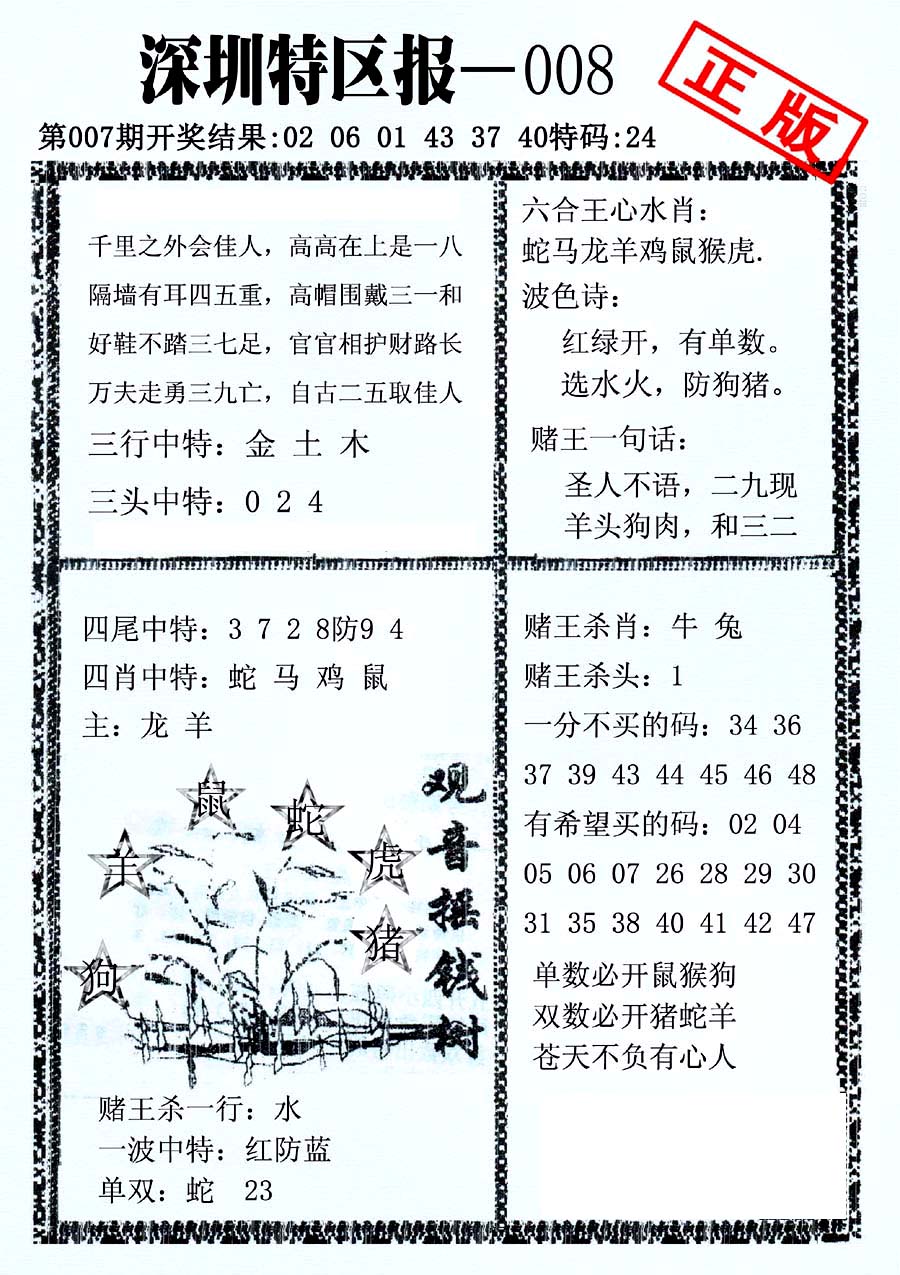 深圳特区报—008
正版
第007期开奖结果:02 06 01 43 37 40特码:24
千里之外会佳人，高高在上是一八
隔墙有耳四五重，高帽围戴三一和
好鞋不踏三七足，官官相护财路长
万夫走勇三九亡，自古二五取佳人
三行中特：金 土 木
三头中特：0 2 4
六合王心水肖：
蛇马龙羊鸡鼠猴虎.
波色诗：
红绿开，有单数。
选水火，防狗猪。
赌王一句话：
圣人不语，二九现
羊头狗肉，和三二
四尾中特：3 7 2 8防9 4
四肖中特：蛇 马 鸡 鼠
主：龙 羊
鼠
蛇
羊
虎
猪
狗
观音摇钱树
赌王杀一行：水
一波中特：红防蓝
单双：蛇 23
赌王杀肖：牛 兔
赌王杀头：1
一分不买的码：34 36
37 39 43 44 45 46 48
有希望买的码：02 04
05 06 07 26 28 29 30
31 35 38 40 41 42 47
单数必开鼠猴狗
双数必开猪蛇羊
苍天不负有心人